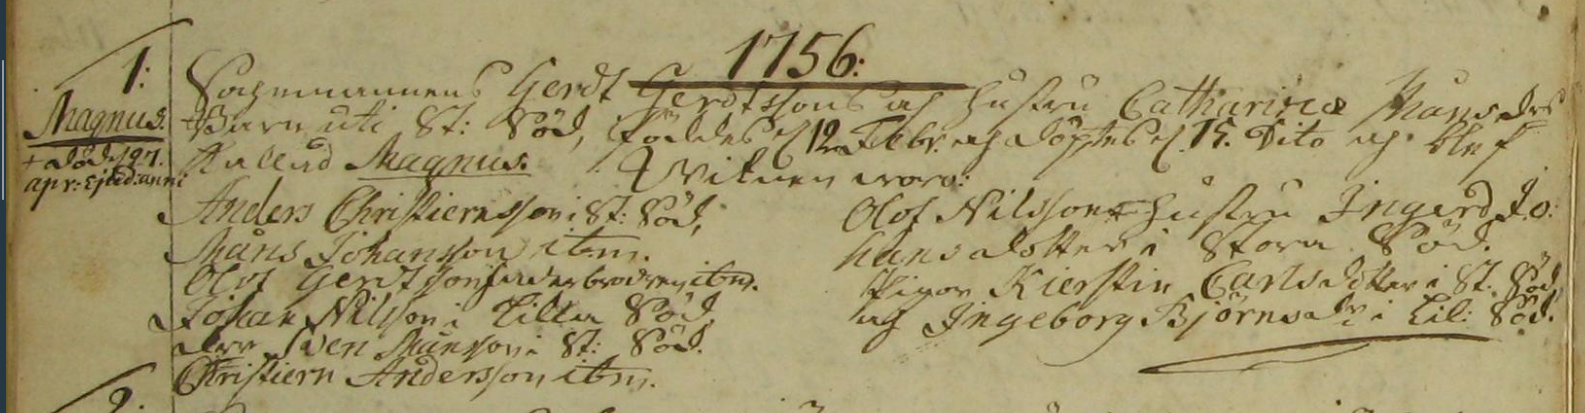 1756:
1:
Magnus.
+ död d. 27.
apr: Ejusd: anni
Gerdt Gerdtssons och hustru Catharinæ Månsdrs
Barn uti St: Röd, föddes d. 12 Febr. och döptes d. 15. Dito och blef
Kallad Magnus. Witnen woro:
Anders Christiernsson i St: Röd,
Måns Johansson ibm.
Olof Gerdtsson faderbrodren ibm.
Johan Nilsson i Lilla Röd,
Sven Månsson i St: Röd.
Christiern Andersson ibm.
Olof Nilssons hustru Ingerd Jo:
hansdotter i Stora Röd.
Pigor Kierstin Carlsdotter i St: Röd,
och Ingeborg Björnsdr i Lil: Röd.
2.